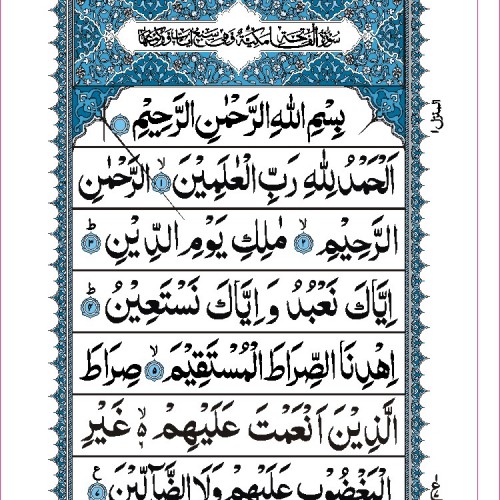 سورۃ الفاتحۃ مکیۃ وھی سبع اٰیات ورکوعھا
بِسْمِ اللهِ الرَّحْمٰنِ الرَّحِيْمِ
اَلْحَمْدُ لِلّٰهِ رَبِّ الْعٰلَمِيْنَ ۙ﴿۱﴾ الرَّحْمٰنِ
الرَّحِيْمِ ۙ﴿۲﴾ مٰلِكِ يَوْمِ الدِّيْنِ ؕ﴿۳﴾
اِيَّاكَ نَعْبُدُ وَ اِيَّاكَ نَسْتَعِيْنُ ؕ﴿۴﴾
اِهْدِنَا الصِّرَاطَ الْمُسْتَقِيْمَ ۙ﴿۵﴾ صِرَاطَ
الَّذِيْنَ اَنْعَمْتَ عَلَيْهِمْ ۙ۬ غَيْرِ
الْمَغْضُوْبِ عَلَيْهِمْ وَلَا الضَّآلِّيْنَ ﴿۷﴾ ع
المنزل ۱